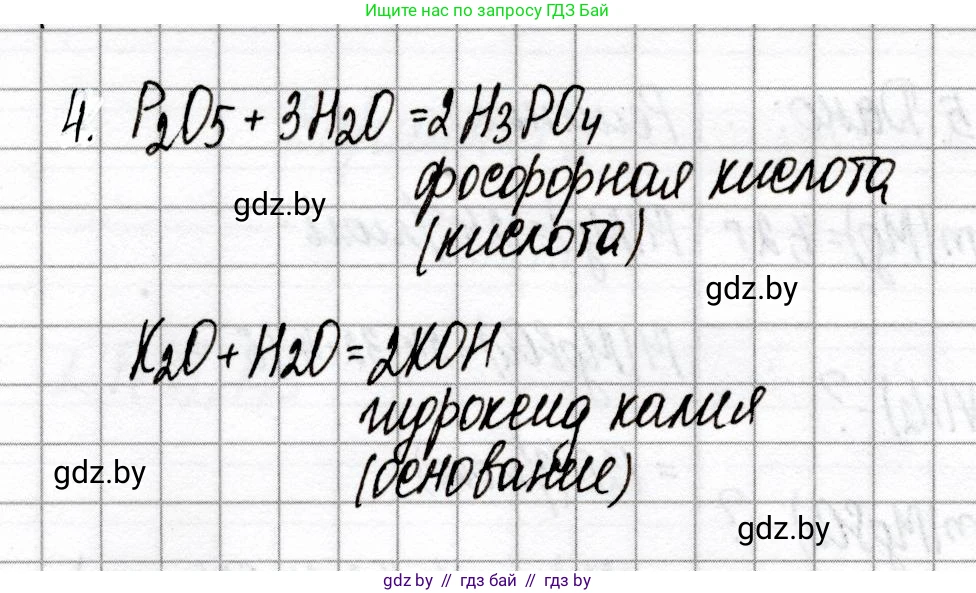 Ищите нас по запросу ГДЗ Бай
4. P2O5 + 3H2O = 2H3PO4
фосфорная кислота
gdz.by
(кислота)
gdz.by
K2O + H2O = 2KOH
гидроксид калия
gdz.by
(основание)
gdz.by
gdz.by // гдз бай // гдз by